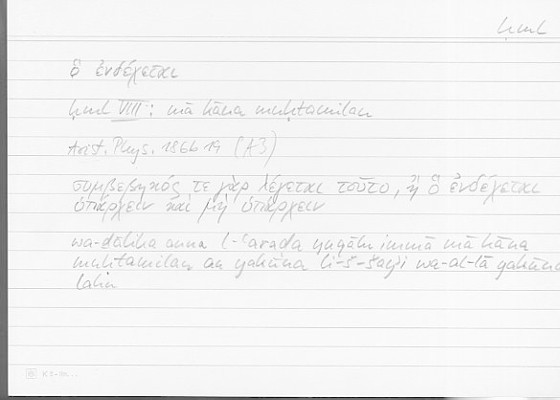 ḥml
ὃ ἐνδέχεται
ḥml VIII : mā kāna muḥtamilan
Arist. Phys. 186b19 (A3)
συμβεβηκός τε γὰρ λέγεται τοῦτο, ἢ ὃ ἐνδέχεται
ὑπάρχειν καὶ μὴ ὑπάρχειν
wa-ḏālika anna l-ʿaraḍa yuqālu immā mā kāna
muḥtamilan an yakūna li-š-šayʾi wa-al-lā yakūna
lahu